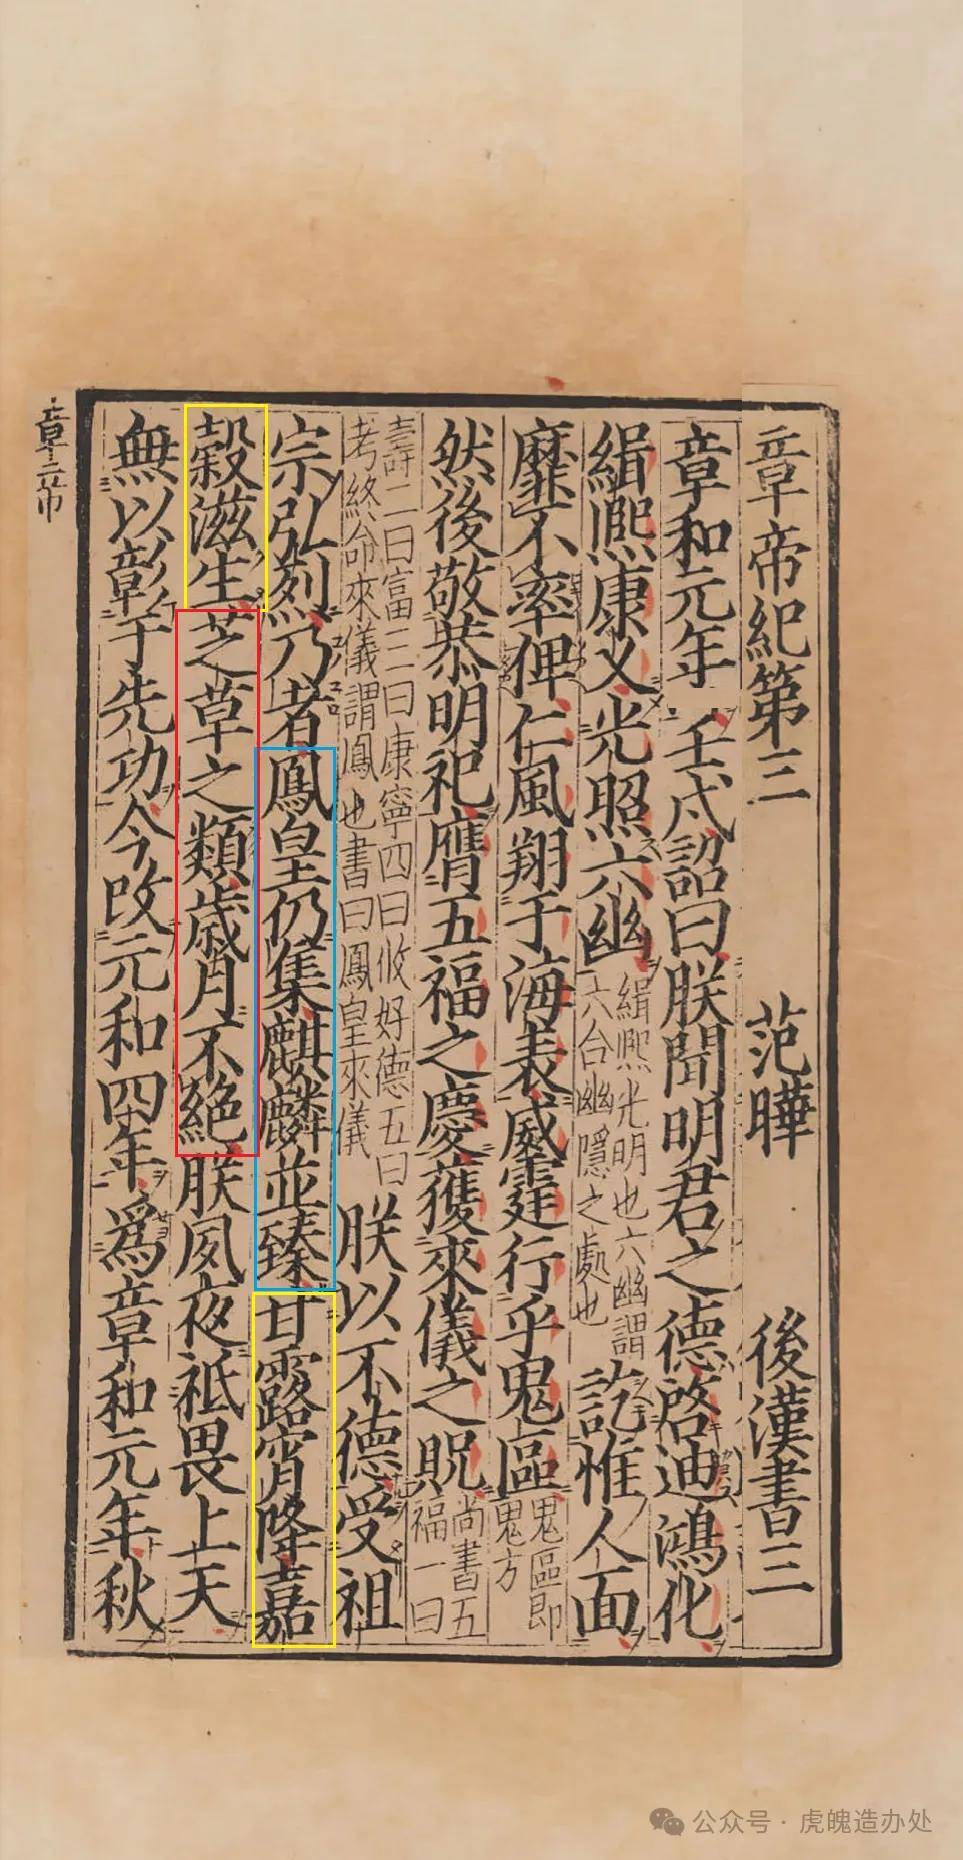 章帝紀第三 范曄 後漢書三
章和元年 壬戌詔曰朕聞明君之德啓迪鴻化
緝熙康乂光照六幽 緝熙光明也六幽謂六合幽隱之處也 訖惟人面
靡不率俾仁風翔于海表威霆行乎鬼區 鬼區即鬼方
然後敬恭明祀膺五福之慶獲來儀之貺 尚書五福一曰
壽二曰富三曰康寧四曰攸好德五曰考終命來儀謂鳳也書曰鳳皇來儀 朕以不德受祖
宗弘烈乃者鳳皇仍集麒麟並臻甘露宵降嘉
穀滋生芝草之類歲月不絕朕夙夜祗畏上天
無以彰于先功今改元和四年爲章和元年秋
公众号·虎魄造办处